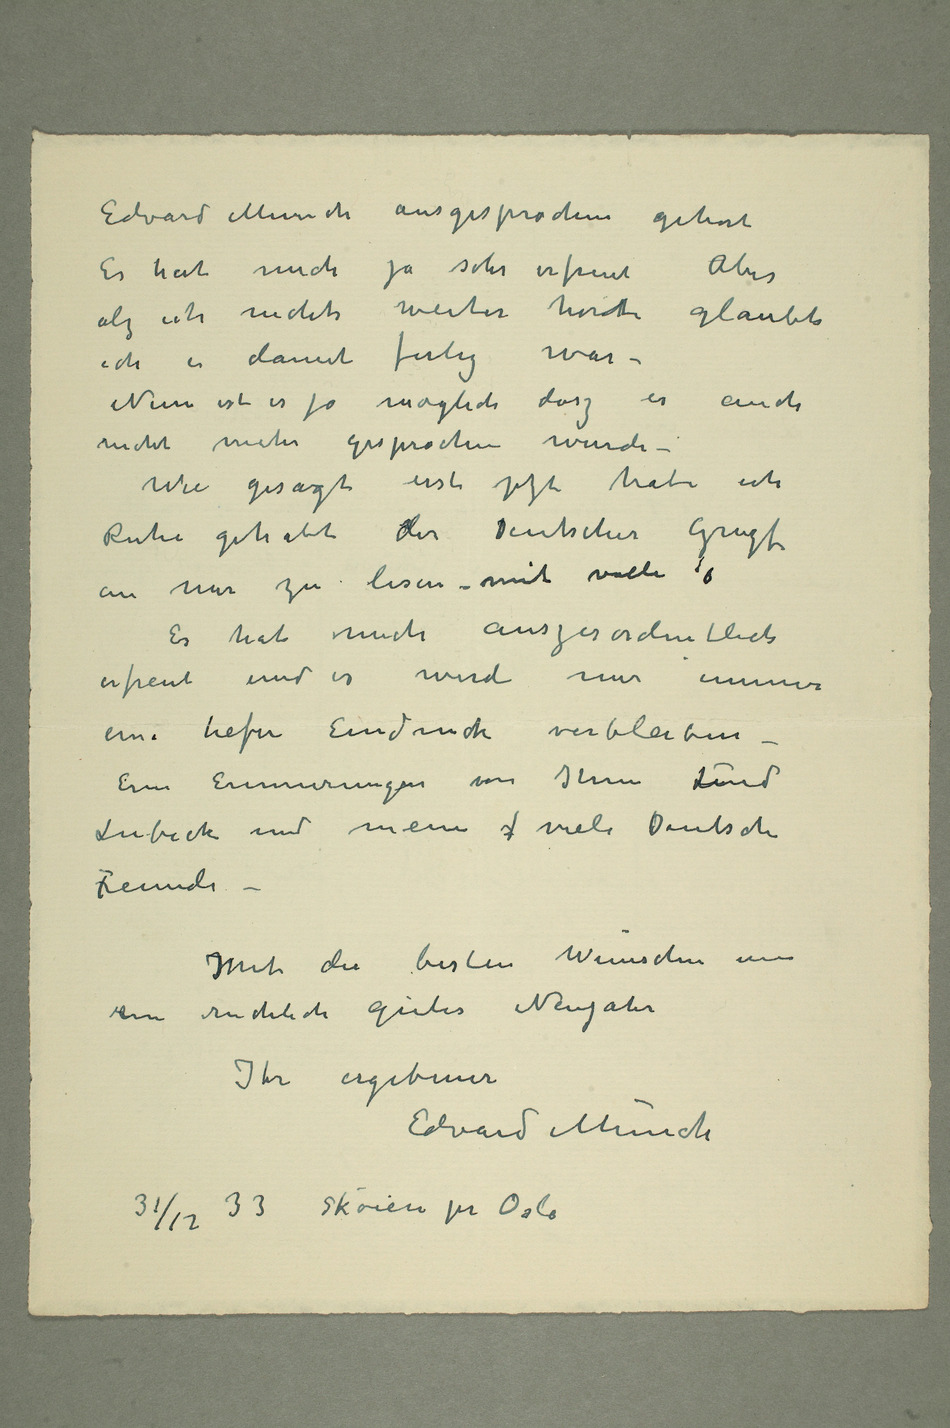 Edvard Munch ausgesprochen gehört
Es hat mich ja sehr erfreut Aber
als ich nichts weiter hörte glaubte
ich es damit fertig war –
Nun ist es ja möglich dasz es auch
nicht mehr gesprochen wurde –
Wie gesagt erst jetzt habe ich
Ruhe gehabt der Deutscher Grugs
an mir zu lesen – mit volle
Es hat mich auszerordentlich
erfreut und es wird mir immer
eine tiefen Eindruck verbleiben –
Ein Erinnerungen von Ihnen und
Lubeck und meine viele Deutsche
Feunde –
Mit die besten Wünschen um
ein reichlich gutes Neujahr
Ihr ergebener
Edvard Munch
31/12 33 Sköien pr Oslo